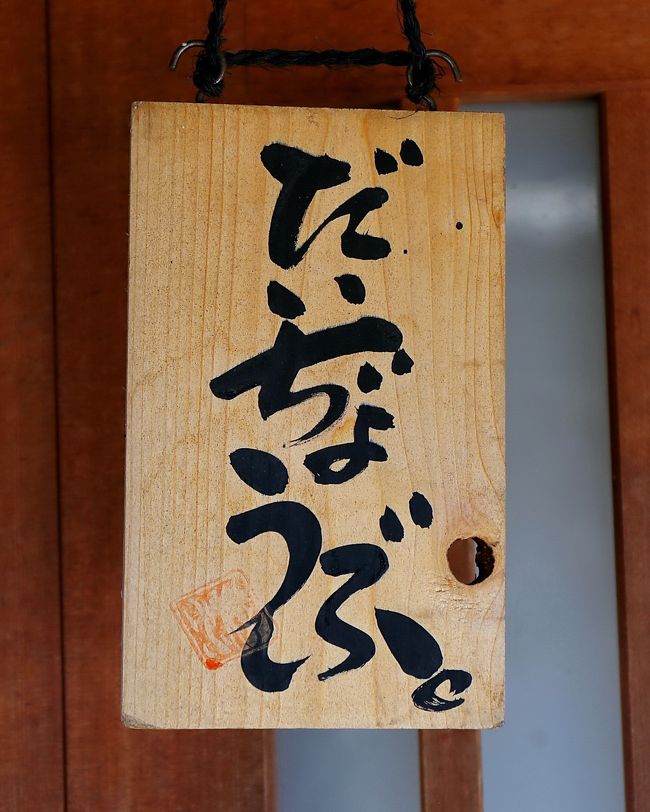 だいぢょうぶ。